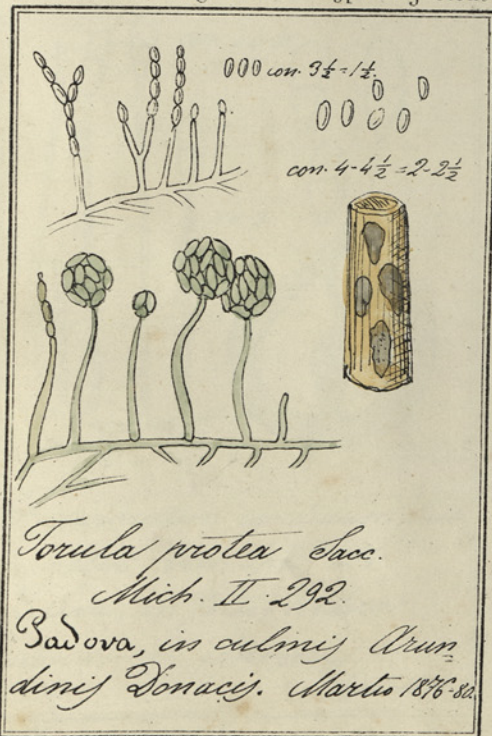 con. 3½=1½.
con. 4-4½=2-2½
Torula protea Sacc.
Mich. II. 292.
Padova, in culmis Arun=
dinis Donacis. Martio 1876-80.